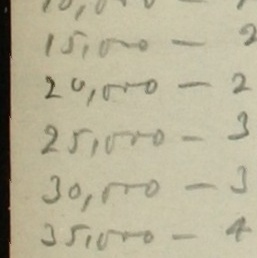 10,000 -
15,000 - 2
20,000 - 2
25,000 - 3
30,000 - 3
35,000 - 4